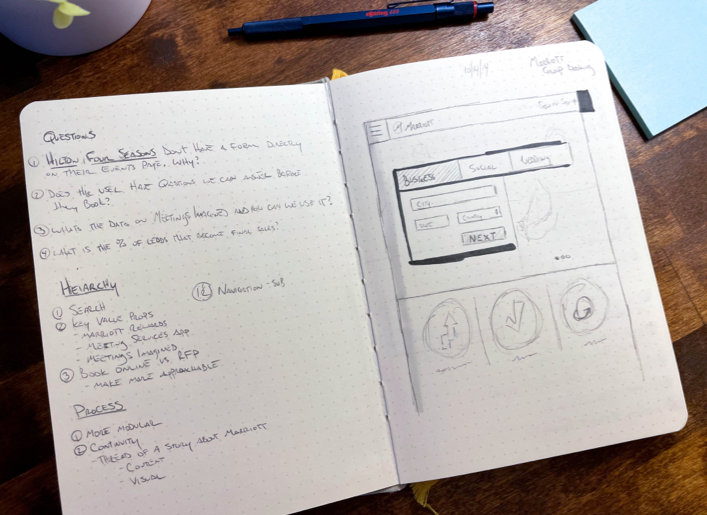 QUESTIONS
① HILTON & FOUR SEASONS DON'T HAVE A FORM DIRECTLY
ON THEIR EVENTS PAGE, WHY?
② DOES THE USER HAVE QUESTIONS WE CAN ANSWER BEFORE
THEY BOOK?
③ WHAT'S THE DATA ON MEETINGS IMAGINED AND HOW CAN WE USE IT?
④ WHAT IS THE % OF LEADS THAT BECOME FINAL SALES?
HEIARCHY
① SEARCH
② KEY VALUE PROPS
- MARRIOTT REWARDS
- MEETING SERVICES APP
MEETINGS IMAGINED
③ BOOK ONLINE VS. RFP
- MAKE MORE APPROACHABLE
NAVIGATION - SUB
PROCESS
① MORE MODULAR
② CONTINUITY
- THREAD OF A STORY ABOUT MARRIOTT
- CONTENT
- VISUAL
MARRIOTT
GROUP BOOKING
MARRIOTT
BUSINESS
SOCIAL
WEDDING
CITY
STATE
COUNTRY
NEXT
rotring